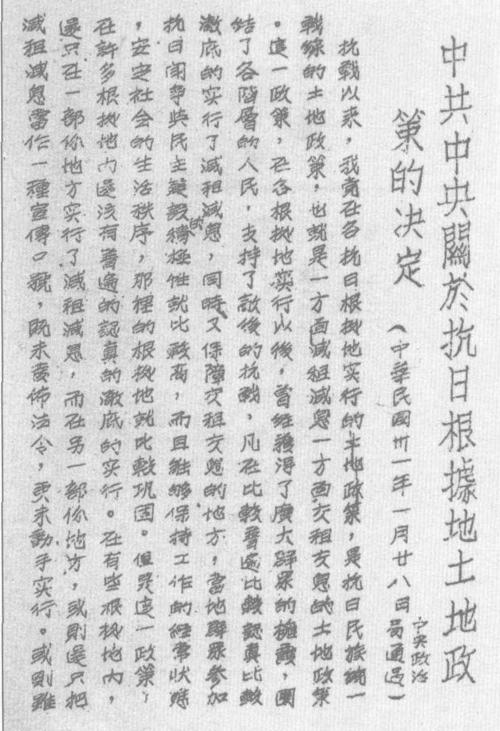 中共中央關於抗日根據地土地政
策的决定
（中華民國卅一年一月廿八日中央政治局通過）
抗戰以來，我党在各抗日根据地实行的土地政策，是抗日民族統一
戰線的土地政策，也就是一方面减租减息一方面交租交息的土地政策
。這一政策，在各根据地实行以後，曾经獲得了廣大群眾的擁護，團
结了各階層的人民，支持了敵後的抗戰，凡在比較普遍比較認真比較
澈底的实行了减租减息，同時又保障交租交息的地方，當地群眾参加
抗日鬥爭與民主建設的積極性就比較高，而且能够保持工作的經常狀態
，安定社会的生活秩序，那裡的根据地就比較巩固。但是這一政策，
在許多根据地內還没有普遍的認真的澈底的实行。在有些根据地內，
還只在一部份地方实行了减租减息，而在另一部份地方，或則還只把
减租减息當作一種宣傳口號，既未發佈法令，更未動手实行。或則雖